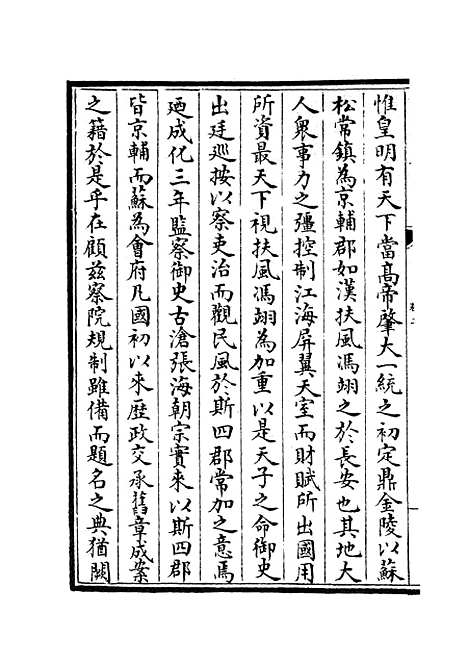 惟皇明有天下當髙帝肇大一統之初定鼎金陵以蘇
松常鎮為京輔郡如漢扶風馮翊之於長安也其地大
人衆事力之彊控制江海屏翼天室而財賦所出國用
所資最天下視扶風馮翊為加重以是天子之命御史
出廷巡按以察吏治而觀民風於斯四郡常加之意焉
廼成化三年監察御史古滄張海朝宗實來以斯四郡
皆京輔而蘇為會府凡國初以來歴政交承舊章成案
之籍於是乎在顧兹察院規制雖備而題名之典猶闕